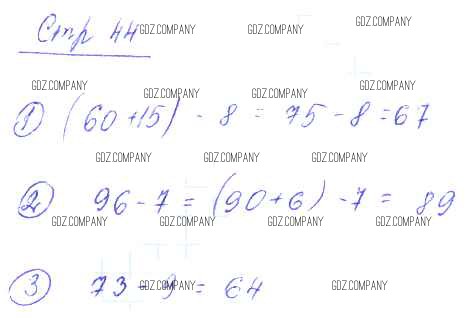 Стр 44
GDZ.COMPANY GDZ.COMPANY GDZ.COMPANY
GDZ.COMPANY GDZ.COMPANY GDZ.COMPANY GDZ.COMPANY
1) (60+15) - 8 = 75 - 8 = 67
GDZ.COMPANY GDZ.COMPANY GDZ.COMPANY
2) 96 - 7 = (90+6) - 7 = 89
GDZ.COMPANY GDZ.COMPANY GDZ.COMPANY GDZ.COMPANY
3) 73 - 9 = 64
GDZ.COMPANY GDZ.COMPANY